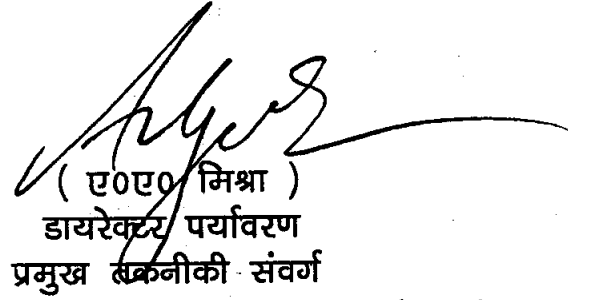 ( ए0ए0 मिश्रा )
डायरेक्टर पर्यावरण
प्रमुख तकनीकी संवर्ग